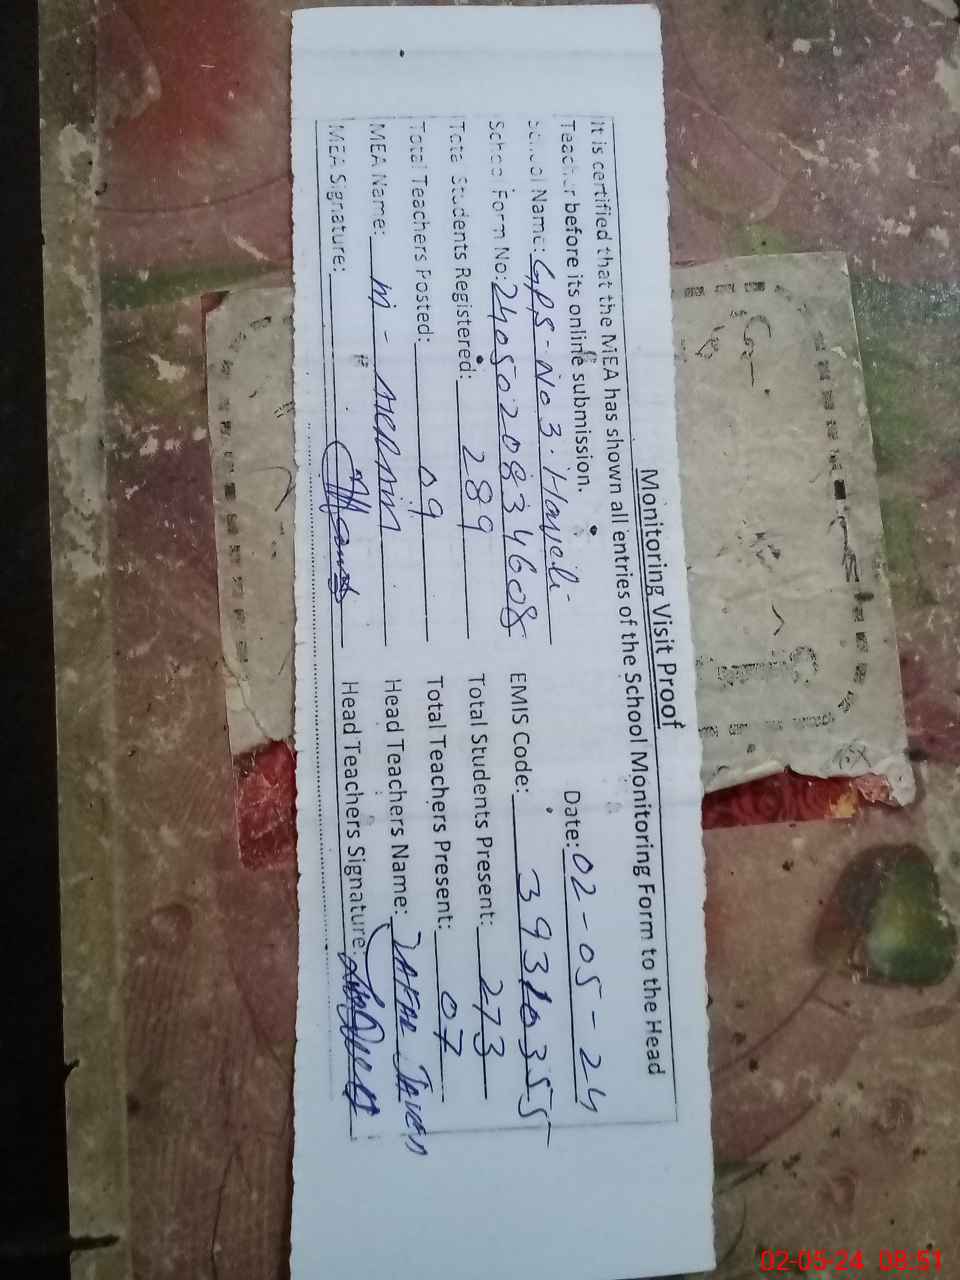 Monitoring Visit Proof
It is certified that the MEA has shown all entries of the School Monitoring Form to the Head
Teacher before its online submission.
Date: 02-05-24
School Name: GPS-No 3. Haveli
School Form No: 2405020834608 EMIS Code: 39310355
Total Students Registered: 289 Total Students Present: 273
Total Teachers Posted: 09 Total Teachers Present: 07
MEA Name: M- Head Teachers Name: JAVED
MEA Signature: Head Teachers Signature:
02-05-24 08:51